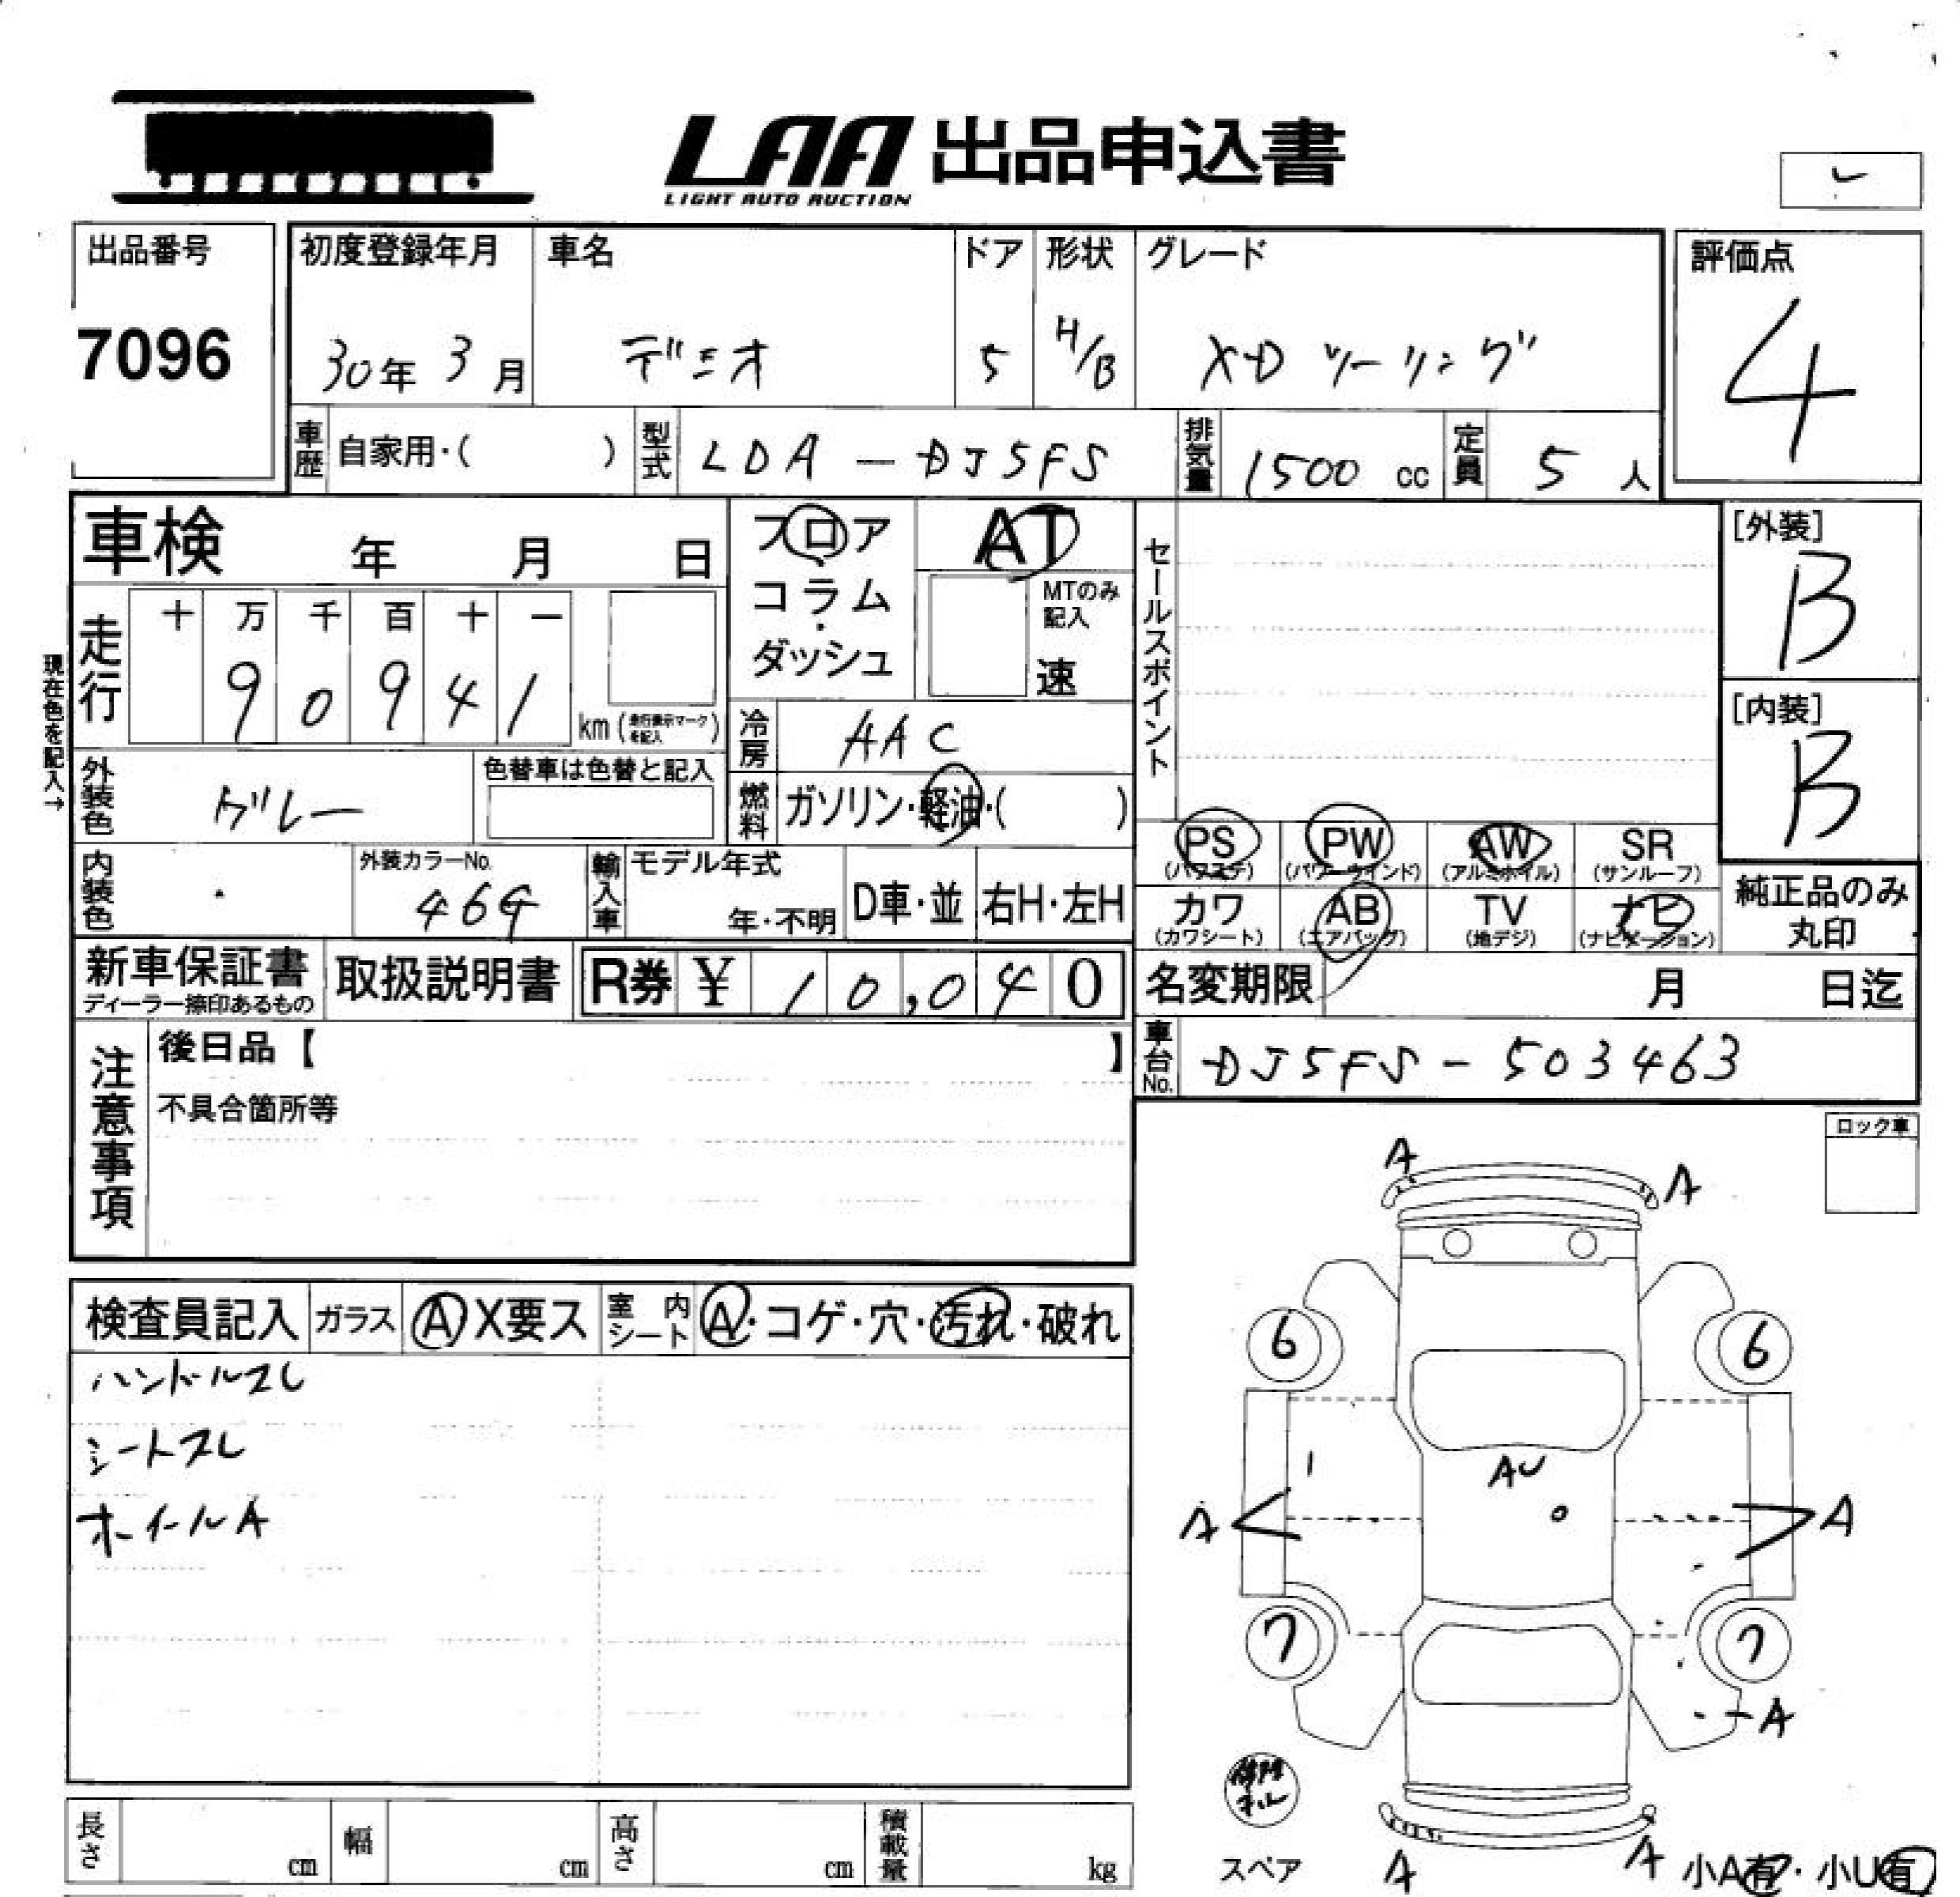 LAA 出品申込書
LIGHT AUTO AUCTION
出品番号 初度登録年月 車名 ドア 形状 グレード 評価点
7096 30年 3月 デミオ 5 H/B XDツーリング 4
車歴 自家用・( ) 型式 LDA-DJ5FS 排気量 1500 cc 定員 5 人
車検 年 月 日 フロア AT セールスポイント [外装]
コラム・ MTのみ記入 B
ダッシュ 速
走行 十 万 千 百 十 一
9 0 9 4 1 km (走行表示マークを記入)
現在色を記入→
[内装]
B
冷房 AAC
外装色 グレー 色替車は色替と記入 燃料 ガソリン・軽油・( )
PS PW AW SR
(パワステ) (パワーウインド) (アルミホイル) (サンルーフ)
内装色 外装カラーNo. 46G 輸入車 モデル年式 年・不明 D車・並 右H・左H
カワ AB TV ナビ 純正品のみ
(カワシート) (エアバッグ) (地デジ) (ナビゲーション) 丸印
新車保証書 取扱説明書 R券 ¥ 10,040 名変期限 月 日迄
ディーラー捺印あるもの
注意事項 後日品【 】 車台No. DJ5FS-503463
不具合箇所等
ロック車
A
A
検査員記入 ガラス A X要ス 室内シート A・コゲ・穴・汚れ・破れ
6 6
ハンドルスレ
シートスレ
AU
ホイールA
A A
7 7
A
スペア
A A 小A有・小U有
長さ cm 幅 cm 高さ cm 積載量 kg